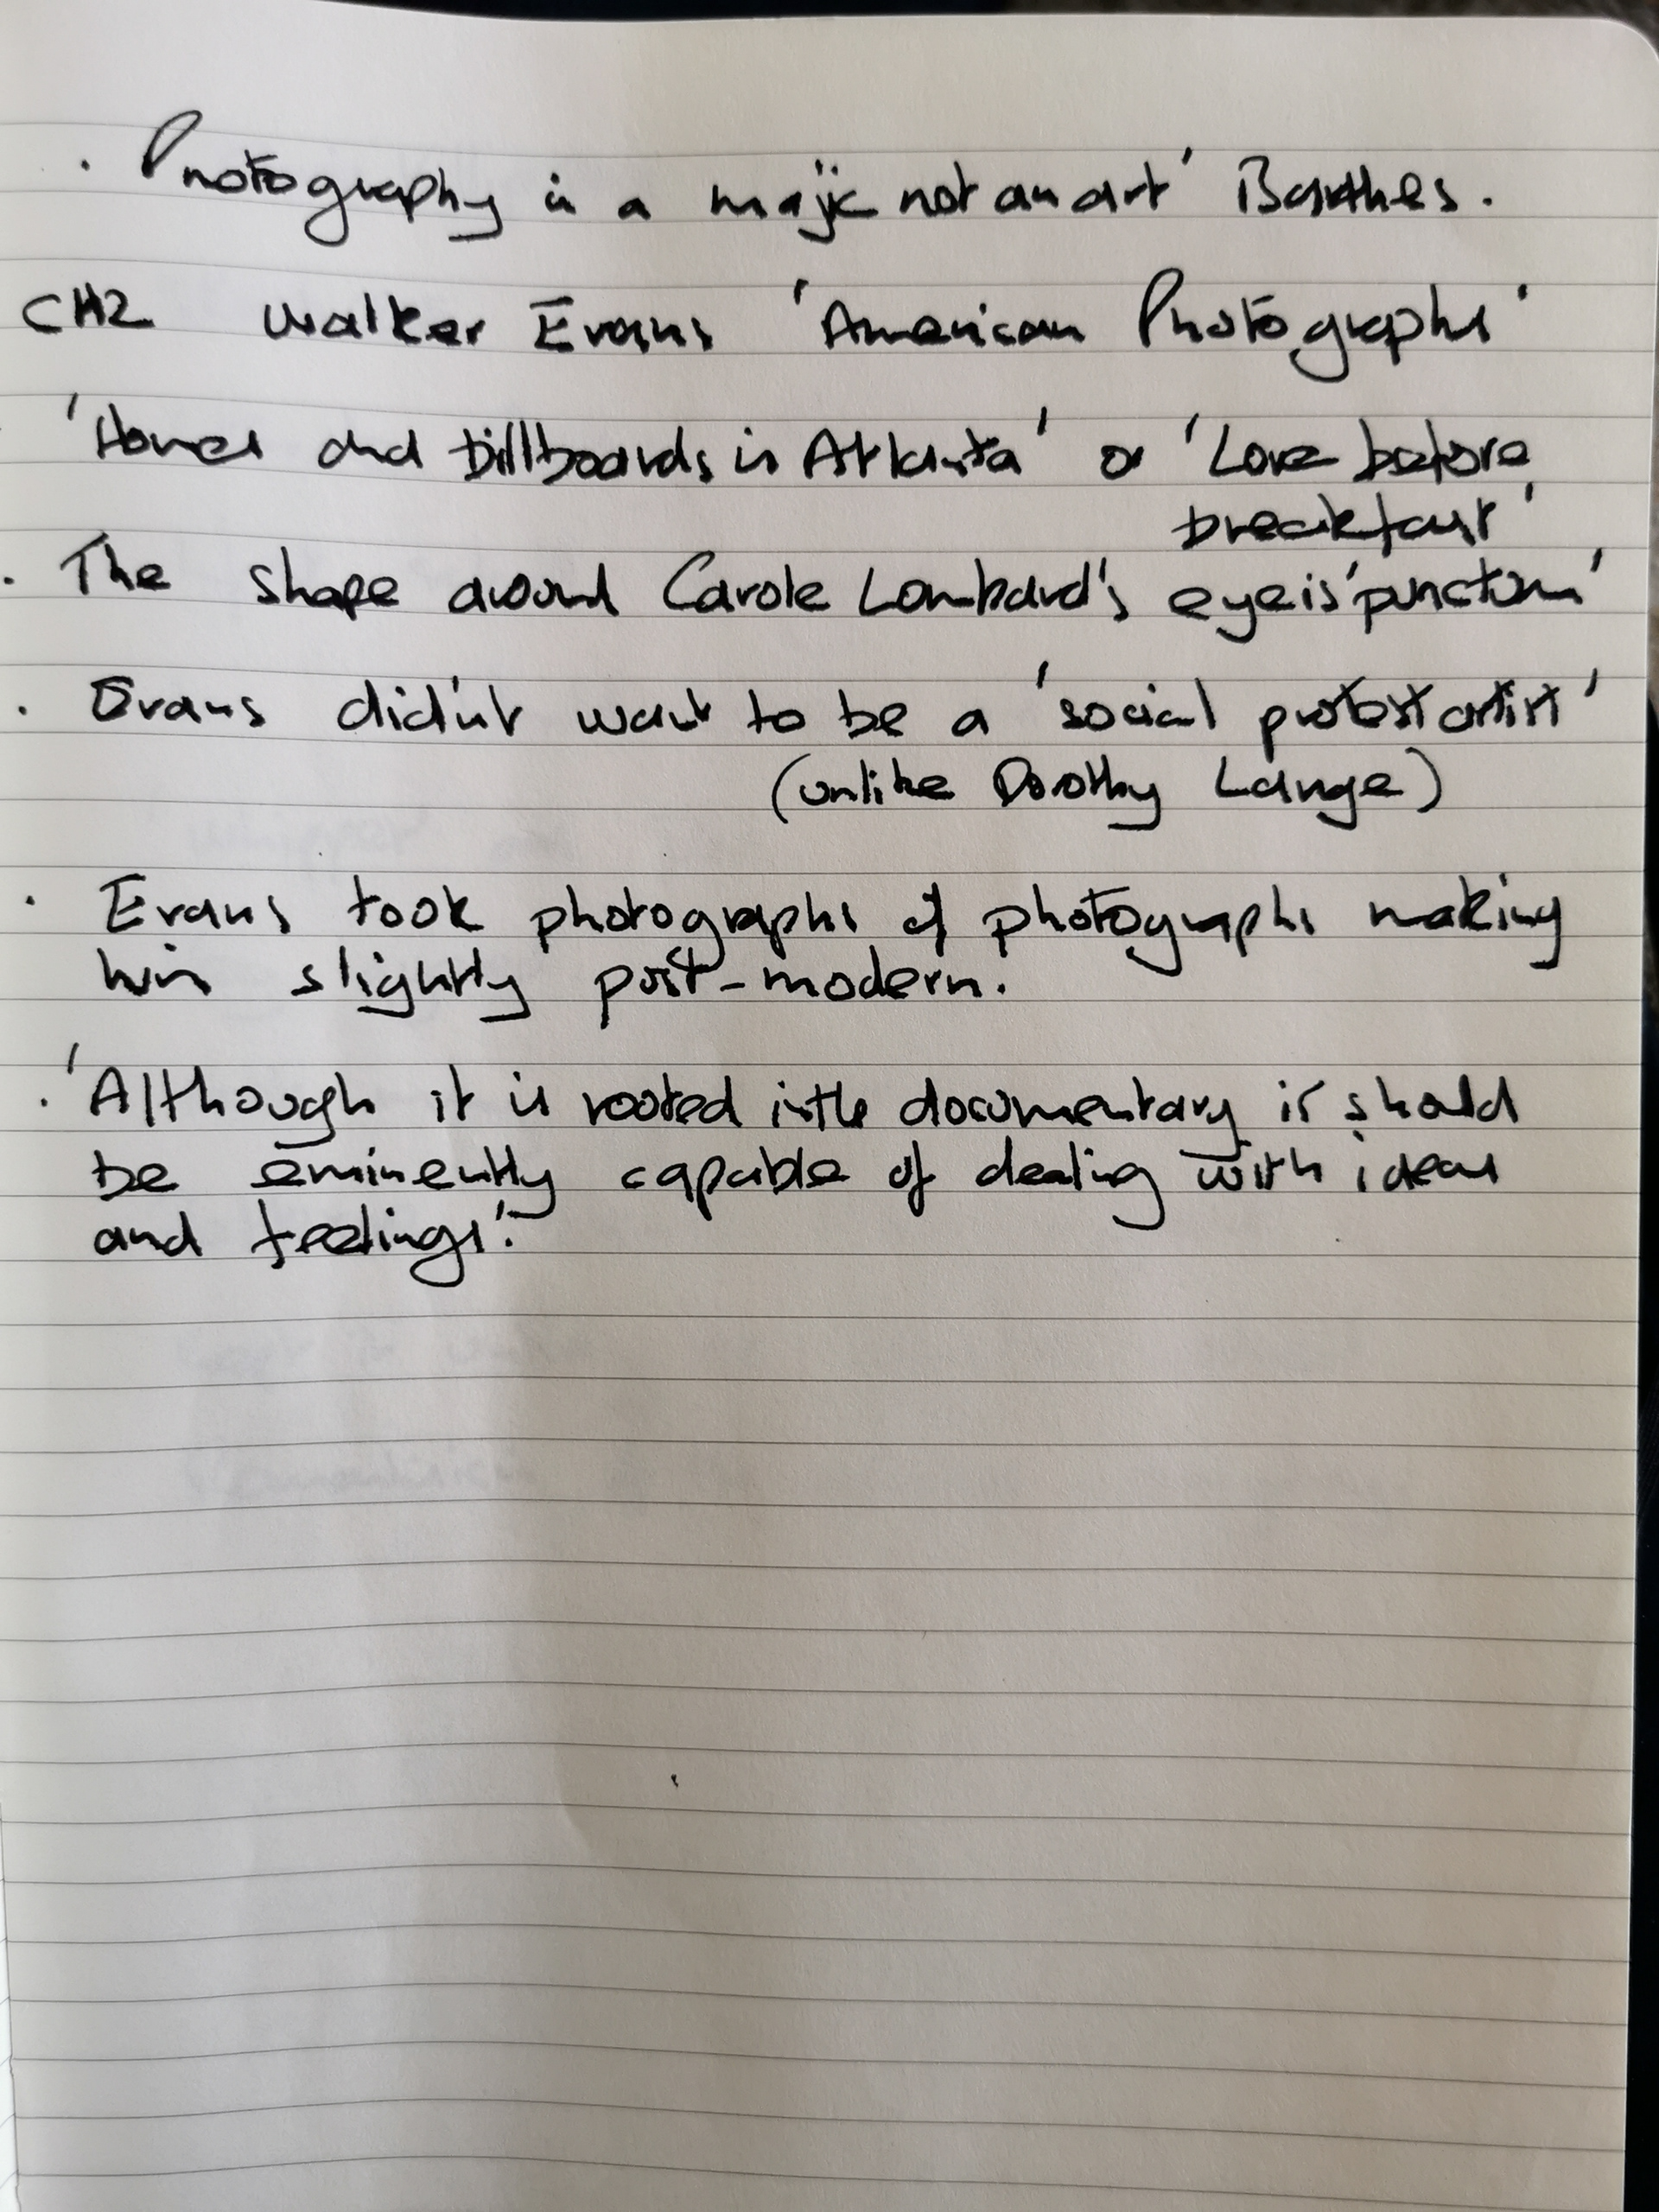 · Photography is a majic not an art' Barthes.
CH2 Walker Evans 'American Photographs'
'Homes and Billboards in Atlanta' or 'Love before
breakfast'
· The shape around Carole Lombard's eye is 'punctum'
· Evans didn't want to be a 'social protest artist'
(unlike Dorothy Lange)
· Evans took photographs of photographs making
him slightly post-modern.
· 'Although it is rooted in the documentary it should
be eminently capable of dealing with ideas
and feelings'.